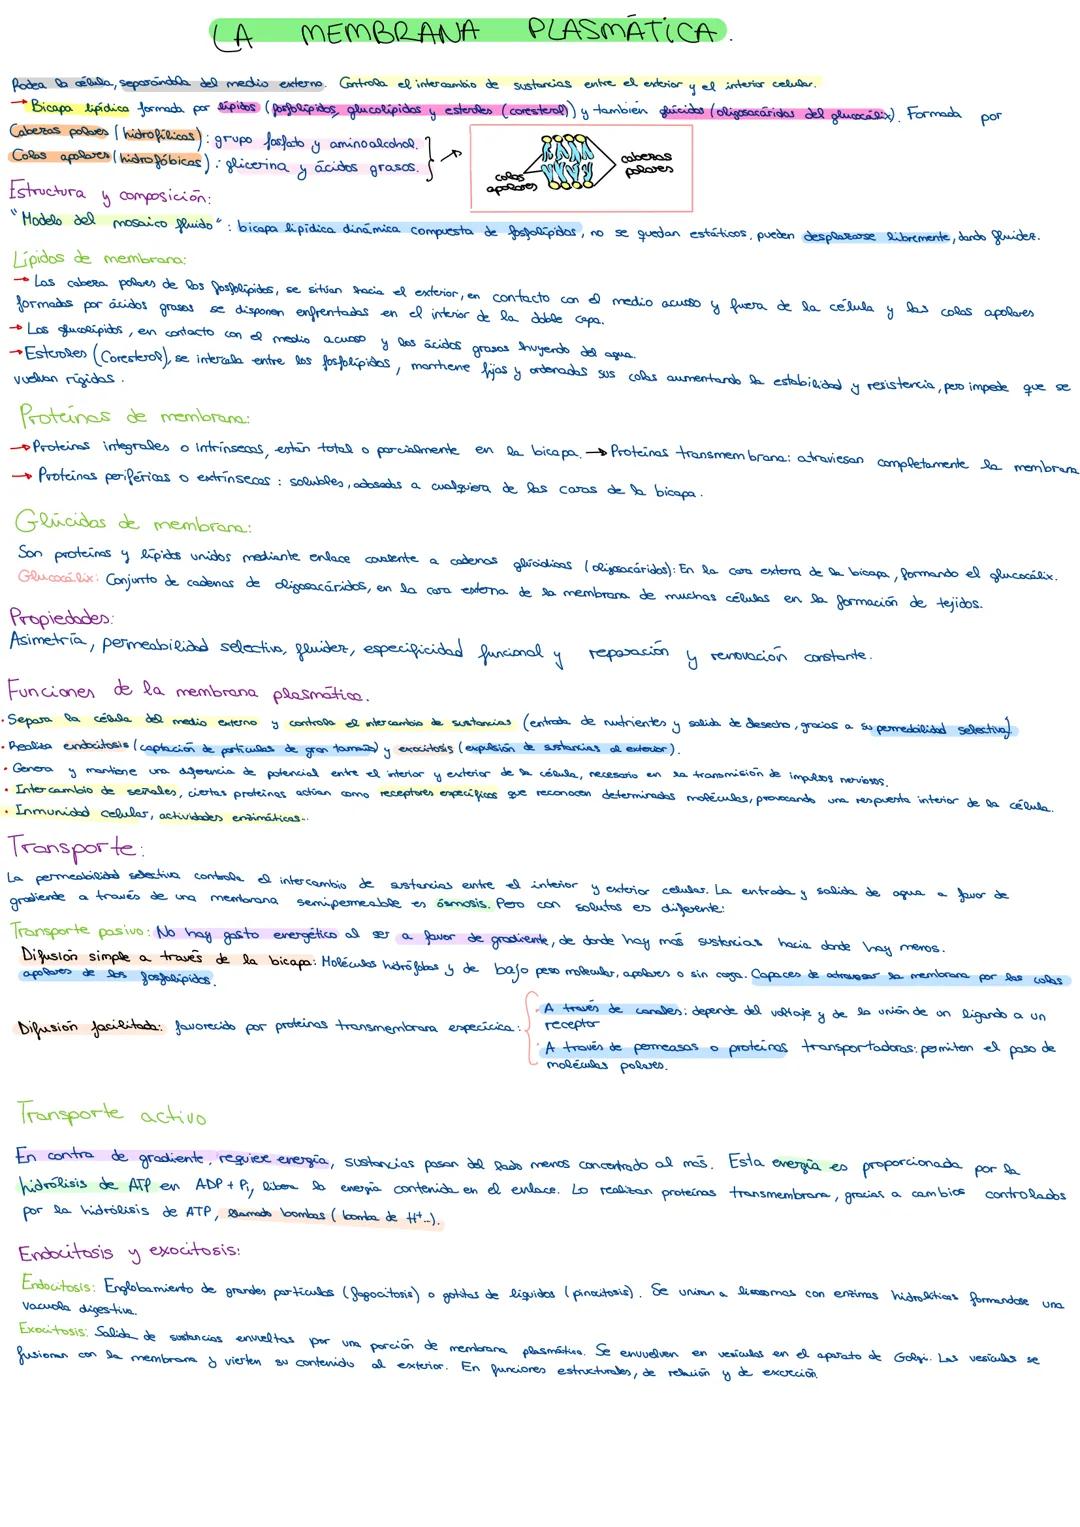 LA MEMBRANA PLASMÁTICA.
Rodea la célula, separándola del medio externo. Controla el intercambio de sustancias entre el exterior y el interior celular.
→ Bicapa lipídica formada por lípidos (fosfolípidos, glucolípidos y esteroles (coresterol)) y también glúcidos (oligosacáridos del glucocálix). Formada por
Cabezas polares (hidrofílicas): grupo fosfato y aminoalcohol.
Colas apolares (hidrofóbicas): glicerina y ácidos grasos.
colas apolares
cabezas polares
Estructura y composición:
"Modelo del mosaico fluido": bicapa lipídica dinámica compuesta de fosfolípidos, no se quedan estáticos, pueden desplazarse libremente, dando fluidez.
Lípidos de membrana:
→ Las cabeza polares de los fosfolípidos, se sitúan hacia el exterior, en contacto con el medio acuoso y fuera de la célula y las colas apolares
formadas por ácidos grasos se disponen enfrentadas en el interior de la doble capa.
→ Los glucolípidos, en contacto con el medio acuoso y los ácidos grasos huyendo del agua.
→ Esteroles (Coresterol), se intercala entre los fosfolípidos, mantiene fijas y ordenadas sus colas aumentando la estabilidad y resistencia, pero impede que se
vuelvan rígidas.
Proteínas de membrana:
→ Proteínas integrales o intrínsecas, están total o parcialmente en la bicapa. → Proteínas transmembrana: atraviesan completamente la membrana
→ Proteínas periféricas o extrínsecas: solubles, adosadas a cualquiera de las caras de la bicapa.
Glúcidos de membrana:
Son proteínas y lípidos unidos mediante enlace covalente a cadenas glucídicas (oligosacáridos): En la cara externa de la bicapa, formando el glucocálix.
Glucocálix: Conjunto de cadenas de oligosacáridos, en la cara externa de la membrana de muchas células en la formación de tejidos.
Propiedades:
Asimetría, permeabilidad selectiva, fluidez, especificidad funcional y reparación y renovación constante.
Funciones de la membrana plasmática.
· Separa la célula del medio externo y controla el intercambio de sustancias (entrada de nutrientes y salida de desecho, gracias a su permeabilidad selectiva)
· Realiza endocitosis (captación de partículas de gran tamaño) y exocitosis (expulsión de sustancias al exterior).
· Genera y mantiene una diferencia de potencial entre el interior y exterior de la célula, necesario en la transmisión de impulsos nerviosos.
· Intercambio de señales, ciertas proteínas actúan como receptores específicos que reconocen determinadas moléculas, provocando una respuesta interior de la célula.
· Inmunidad celular, actividades enzimáticas...
Transporte:
La permeabilidad selectiva controla el intercambio de sustancias entre el interior y exterior celular. La entrada y salida de agua a favor de
gradiente a través de una membrana semipermeable es ósmosis. Pero con solutos es diferente:
Transporte pasivo: No hay gasto energético al ser a favor de gradiente, de donde hay más sustancias hacia donde hay menos.
Difusión simple a través de la bicapa: Moléculas hidrófobas y de bajo peso molecular, apolares o sin carga. Capaces de atravesar la membrana por las colas
apolares de los fosfolípidos.
Difusión facilitada: favorecido por proteínas transmembrana especícica:
· A través de canales: depende del voltaje y de la unión de un ligando a un
receptor
· A través de permeasas o proteínas transportadoras: permiten el paso de
moléculas polares.
Transporte activo
En contra de gradiente, requiere energía, sustancias pasan del lado menos concentrado al más. Esta energía es proporcionada por la
hidrólisis de ATP en ADP + Pi, libera la energía contenida en el enlace. Lo realizan proteínas transmembrana, gracias a cambios controlados
por la hidrólisis de ATP, llamado bombas (bomba de H+...).
Endocitosis y exocitosis:
Endocitosis: Englobamiento de grandes partículas (fagocitosis) o gotitas de líquidos (pinocitosis). Se unirán a lisosomas con enzimas hidrolíticas formandose una
vacuola digestiva.
Exocitosis: Salida de sustancias envueltas por una porción de membrana plasmática. Se envuelven en vesículas en el aparato de Golgi. Las vesículas se
fusionan con la membrana y vierten su contenido al exterior. En funciones estructurales, de relación y de excreción.